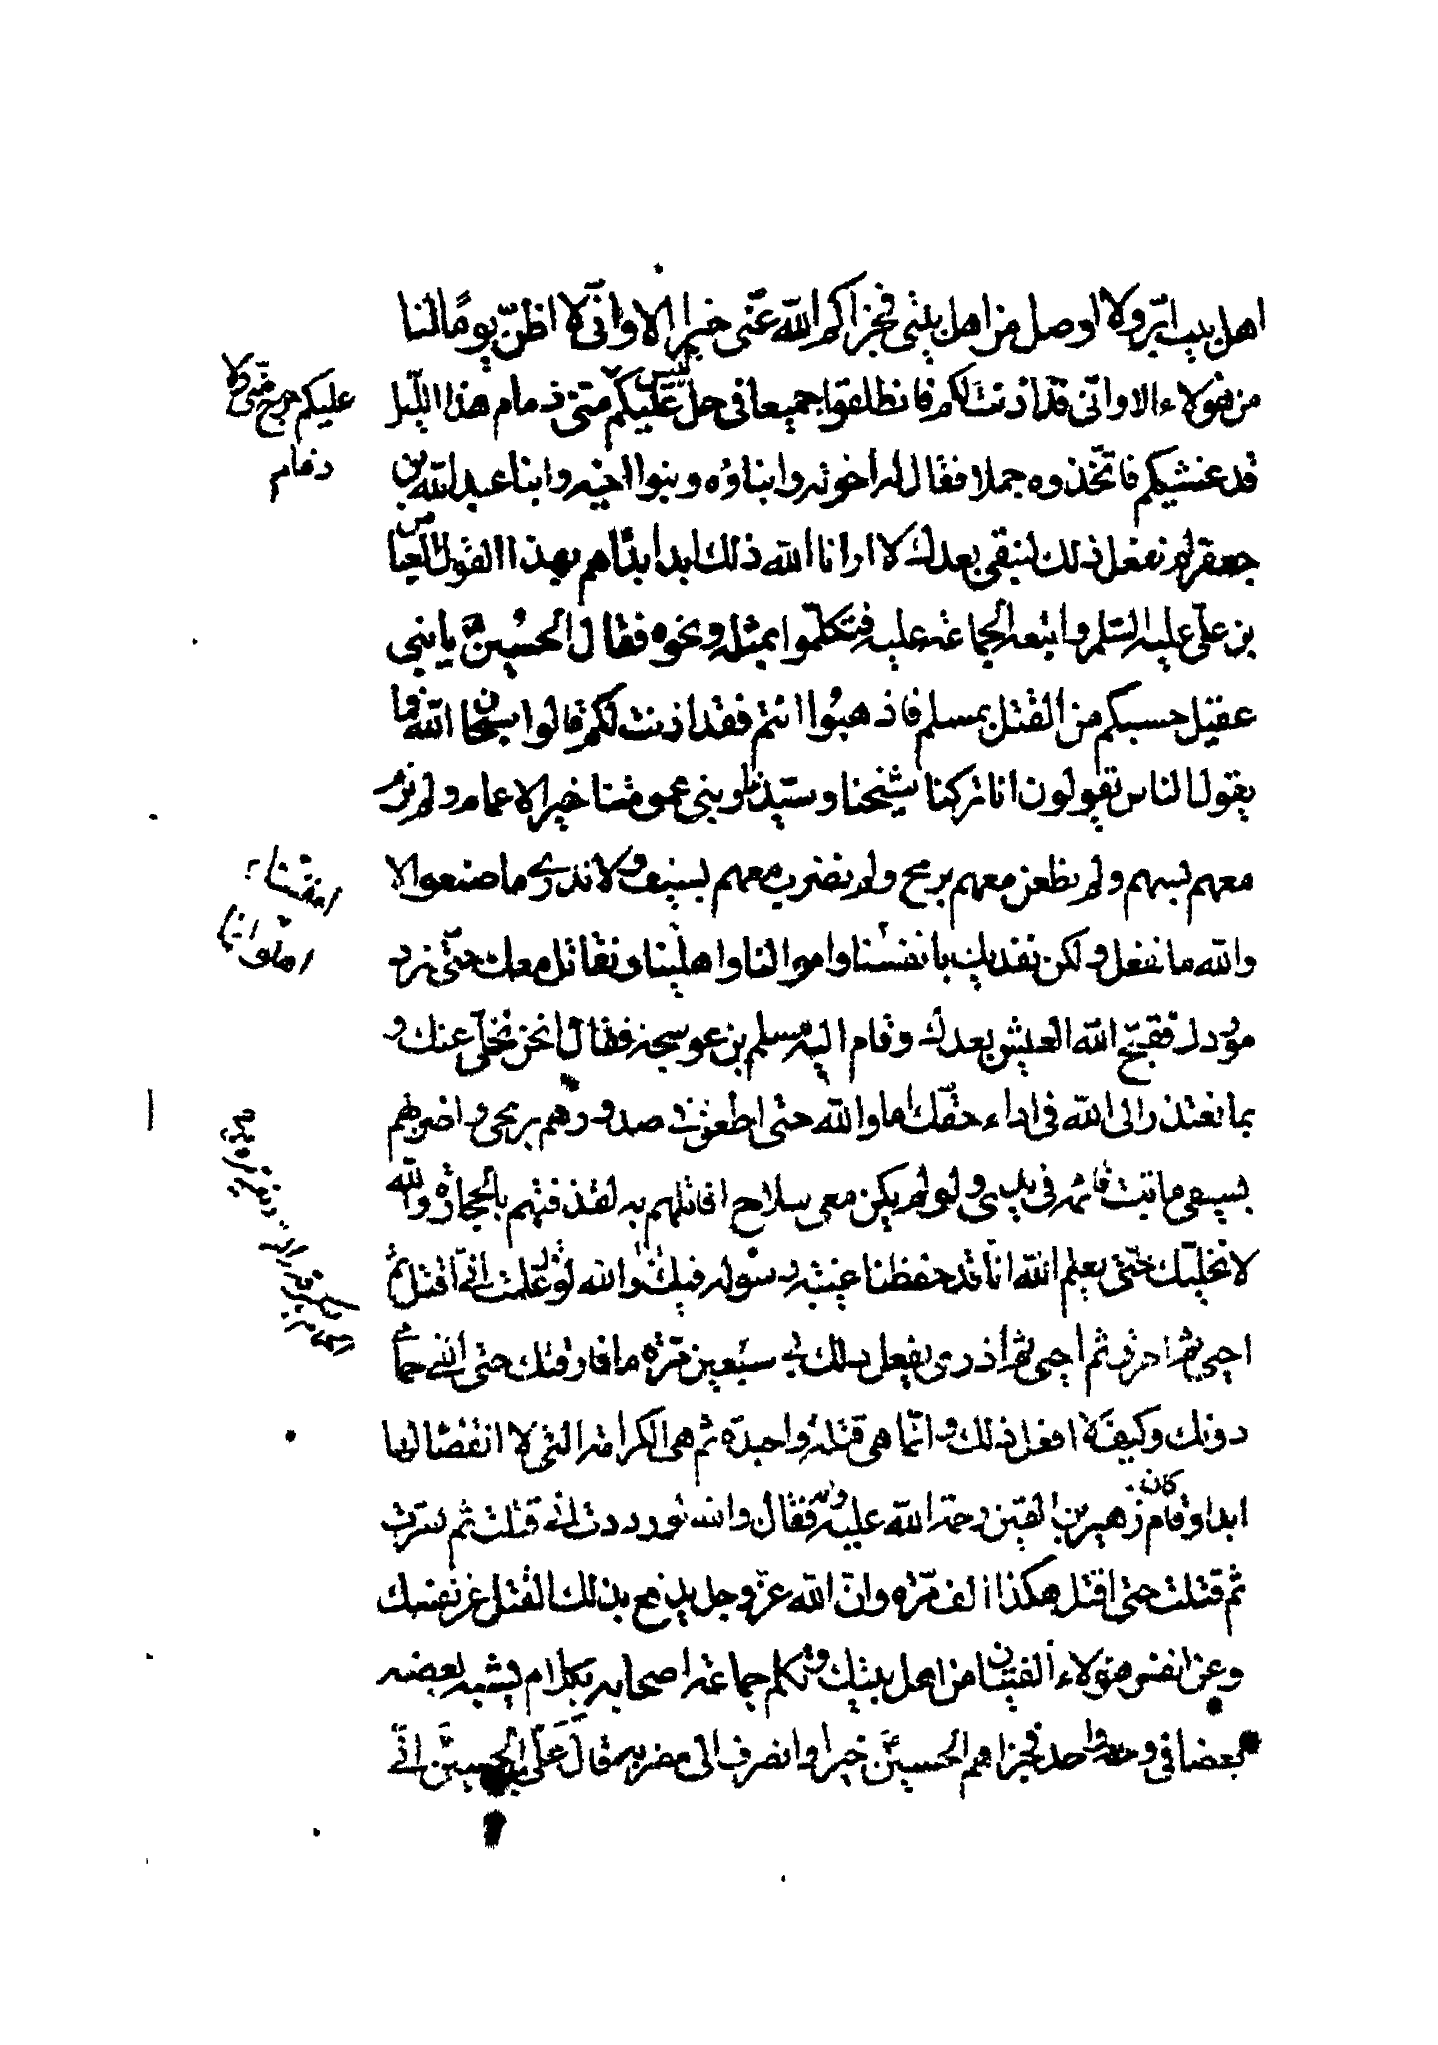 اهل بيت ابرّ ولا اوصل من اهل بيتى فجزاكم الله عنّى خيرا الا وانّى لا اظنّ يومًا لنا
من هؤلاء الا وانّى قد اذنت لكم فانطلقوا جميعا فى حل ليس عليكم منّى ذمام هذا الليل
عليكم حرج منّى ولا
ذمام
قد غشيكم فاتّخذوه جملا فقال له اخوته وابناؤه وبنوا اخيه وابنا عبد الله بن
جعفر لم نفعل ذلك لنبقى بعدك لا ارانا الله ذلك ابدا بداهم بهذا القول العباس
بن علىّ عليه السّلم واتبعه الجماعة عليه فتكلّموا بمثله ونحوه فقال الحسين يا بنى
عقيل حسبكم من القتل بمسلم فاذهبوا انتم فقد اذنت لكم قالوا سبحان الله فما
يقول الناس يقولون انا تركنا شيخنا وسيّدنا وبنى عمومتنا خير الاعمام ولم نرم
معهم بسهم ولم نطعن معهم برمح ولم نضرب معهم بسيف ولا ندرى ما صنعوا لا
والله ما نفعل ولكن نفديك بانفسنا واموالنا واهلينا ونقاتل معك حتّى نرد
انفسنا
اموالنا
موردك فقبّح الله العيش بعدك وقام اليه مسلم بن عوسجة فقال انحن نخلّى عنك و
بما نعتذر الى الله فى اداء حقّك اما والله حتى اطعن فى صدورهم برمحى واضربهم
بسيفى ما ثبت قائمه فى يدى ولو لم يكن معى سلاح اقاتلهم به لقذفتهم بالحجارة والله
لا نخليك حتّى يعلم الله انا قد حفظنا غيبة رسوله فيك والله لو علمت انّى اقتل ثم
احيى ثم احرق ثم احيى ثم اذرى يفعل ذلك بى سبعين مرّة ما فارقتك حتى القى حمامى
دونك وكيف لا افعل ذلك وانّما هى قتلة واحدة ثم هى الكرامة التى لا انقضا لها
ابدا وقام زهير بن القين رحمة الله عليه فقال والله لوددت انّى قتلت ثم نشرت
كان
ثم قتلت حتى اقتل هكذا الف مرّة وانّ الله عزّ وجل يدفع بذلك القتل عن نفسك
وعن انفس هؤلاء الفتيان من اهل بيتك وتكلم جماعة اصحابه بكلام يشبه بعضه
بعضا فى وجه واحد فجزاهم الحسين خيرا وانصرف الى مضربه قال علىّ بن الحسين انّى